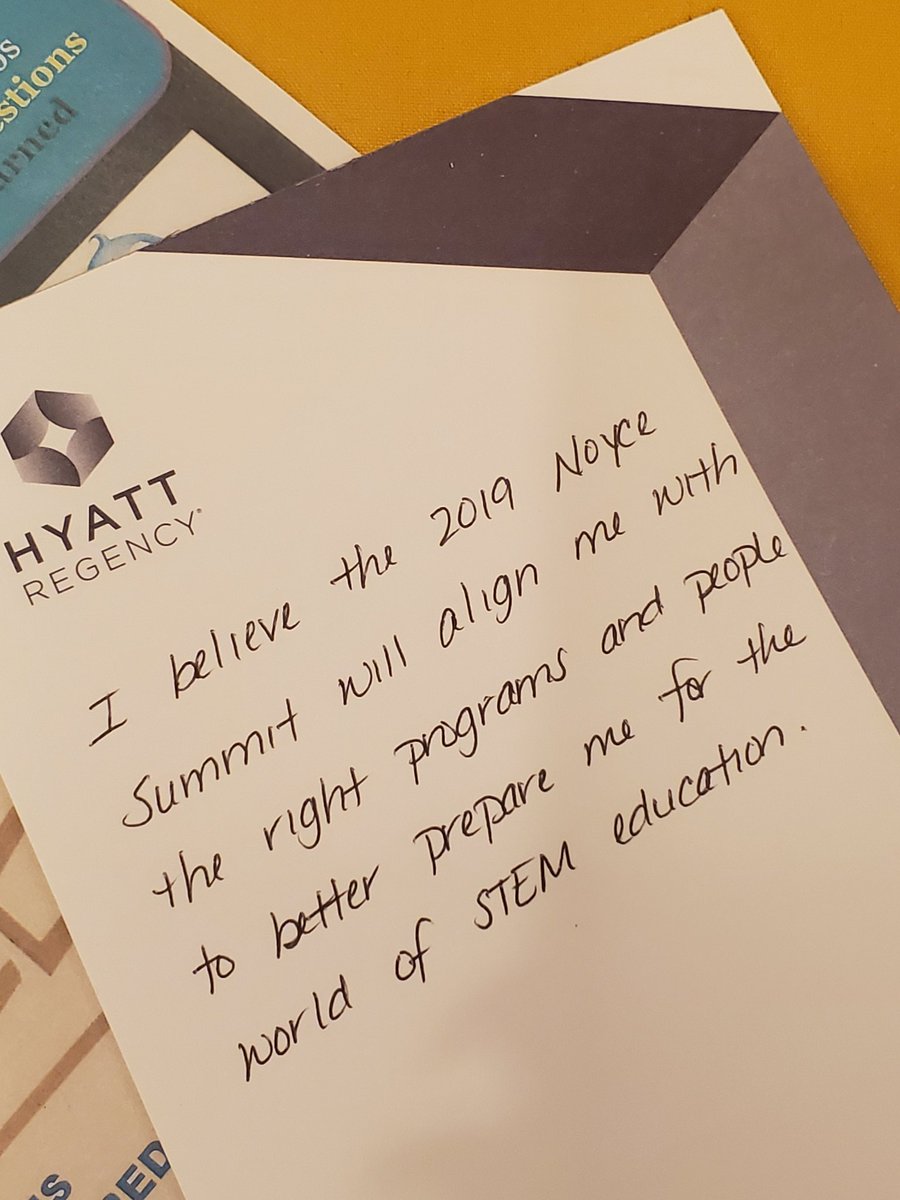 estions
HYATT
REGENCY
I believe the 2019 Noyce
Summit will align me with
the right programs and people
to better prepare me for the
world of STEM education.